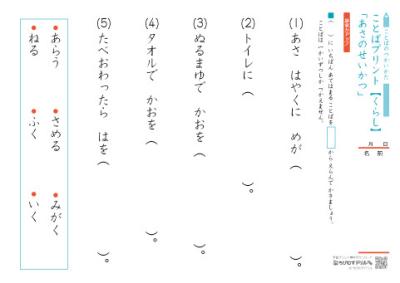 ことばのつかいかた
ことばプリント【くらし】
「あさのせいかつ」
月 日
名前
( )にいちばん あてはまる ことばを から えらんで かきましょう。
ことばは 1かいずつしか つかえません。
(1) あさ はやくに めが ( )。
(2) トイレに ( )。
(3) ぬるまゆで かおを ( )。
(4) タオルで かおを ( )。
(5) たべおわったら はを ( )。
あらう さめる みがく
ねる ふく いく